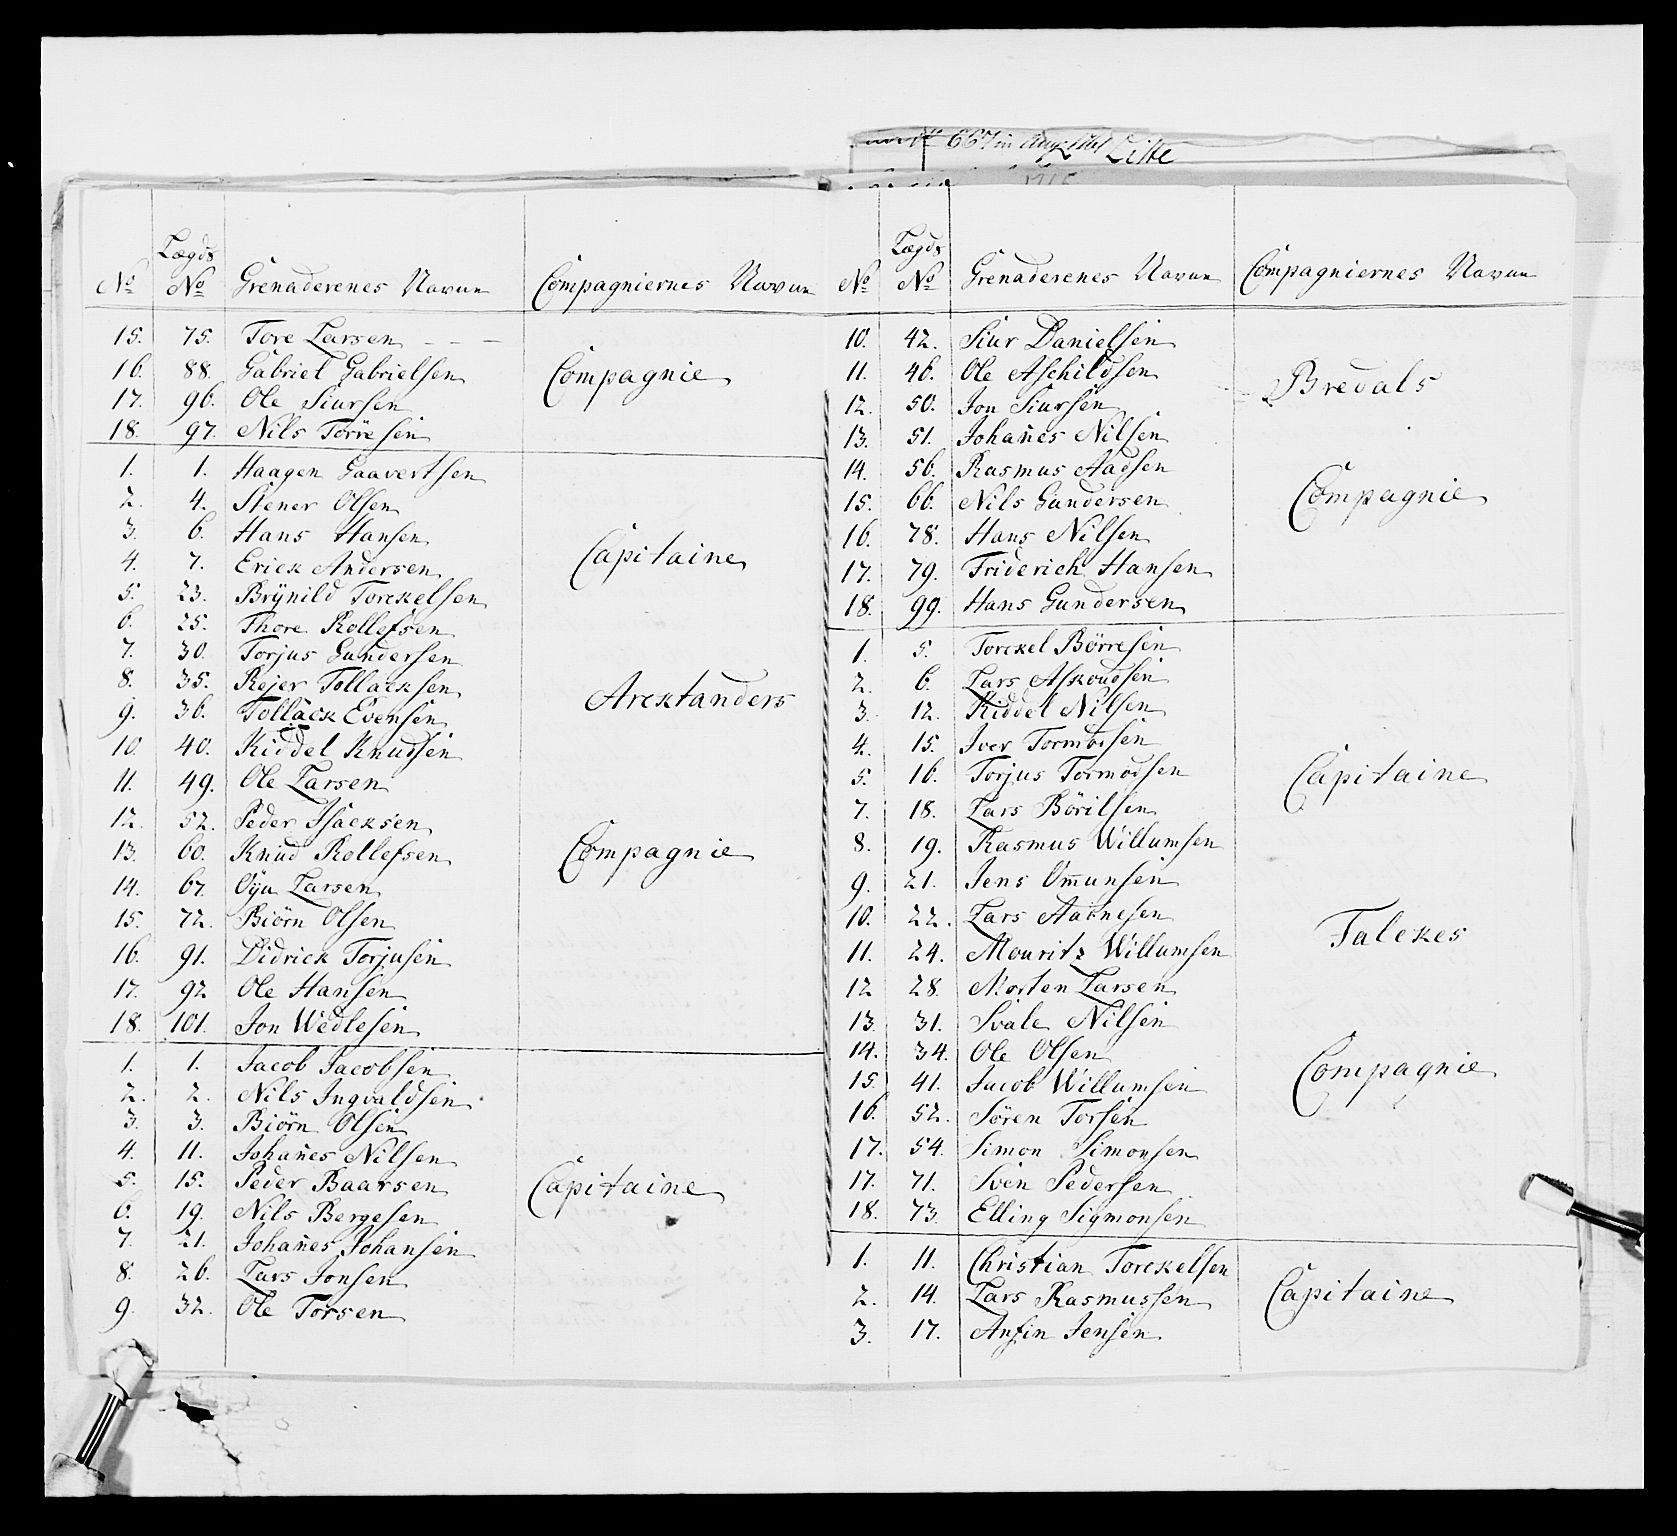 Liste
Lægds
No No Grenaderenes Navne Compagniernes Navne
15. 75. Tore Larsen
16. 88. Gabriel Gabrielsen Compagnie
17. 96. Ole Siursen
18. 97. Nils Törresen
1. 1. Haagen Gaavertsen
2. 4. Stener Olsen
3. 6. Hans Hansen Capitaine
4. 7. Erick Andersen
5. 23. Brÿnild Torckelsen
6. 25. Thore Rollefsen
7. 30. Torjus Gundersen
8. 35. Rejer Tollacksen Arcktanders
9. 36. Tollack Evensen
10. 40. Kiddel Knudsen
11. 49. Ole Larsen
12. 52. Peder Isacksen
13. 60. Knud Rollefsen Compagnie
14. 67. Oÿu Larsen
15. 72. Biörn Olsen
16. 91. Didrick Torjusen
17. 92 Ole Hansen
18. 101. Jon Wedlesen
1. 1. Jacob Jacobsen
2. 2. Nils Ingvaldsen
3. 3. Biörn Olsen
4. 11. Johan̄es Nilsen
5. 15. Peder Baarsen Capitaine
6. 19. Nils Bergesen
7. 21. Johan̄es Johansen
8. 26. Lars Jonsen
9. 32. Ole Torsen
Lægds
No No Grenaderenes Navne Compagniernes Navne
10. 42. Siur Danielsen
11. 46. Ole Aschildsen Bredals
12. 50. Jon Siursen
13. 51. Johan̄es Nilsen
14. 56. Rasmus Aadsen
15. 66. Nils Gundersen Compagnie
16. 78. Hans Nilsen
17. 79. Friderich Hansen
18. 99. Hans Gundersen
1. 5. Torckel Börresen
2. 6. Lars Askoudsen
3. 12. Kiddel Nilsen
4. 15. Iver Tormodsen
5. 16. Torjus Tormodsen Capitaine
7. 18. Lars Börilsen
8. 19. Rasmus Willumsen
9. 21. Jens Om̄unsen
10. 22. Lars Aarnesen Falckes
11. 24. Mouritz Willumsen
12 28. Morten Larsen
13. 31. Svale Nilsen
14. 34. Ole Olsen Compagnie
15. 41. Jacob Willumsen
16. 52. Sören Torsen
17. 54. Simon Simonsen
17. 71. Sven Pedersen
18. 73. Elling Sigmonsen
1. 11. Christian Torckelsen
2. 14. Lars Rasmussen Capitaine
3. 17. Anfin Jensen